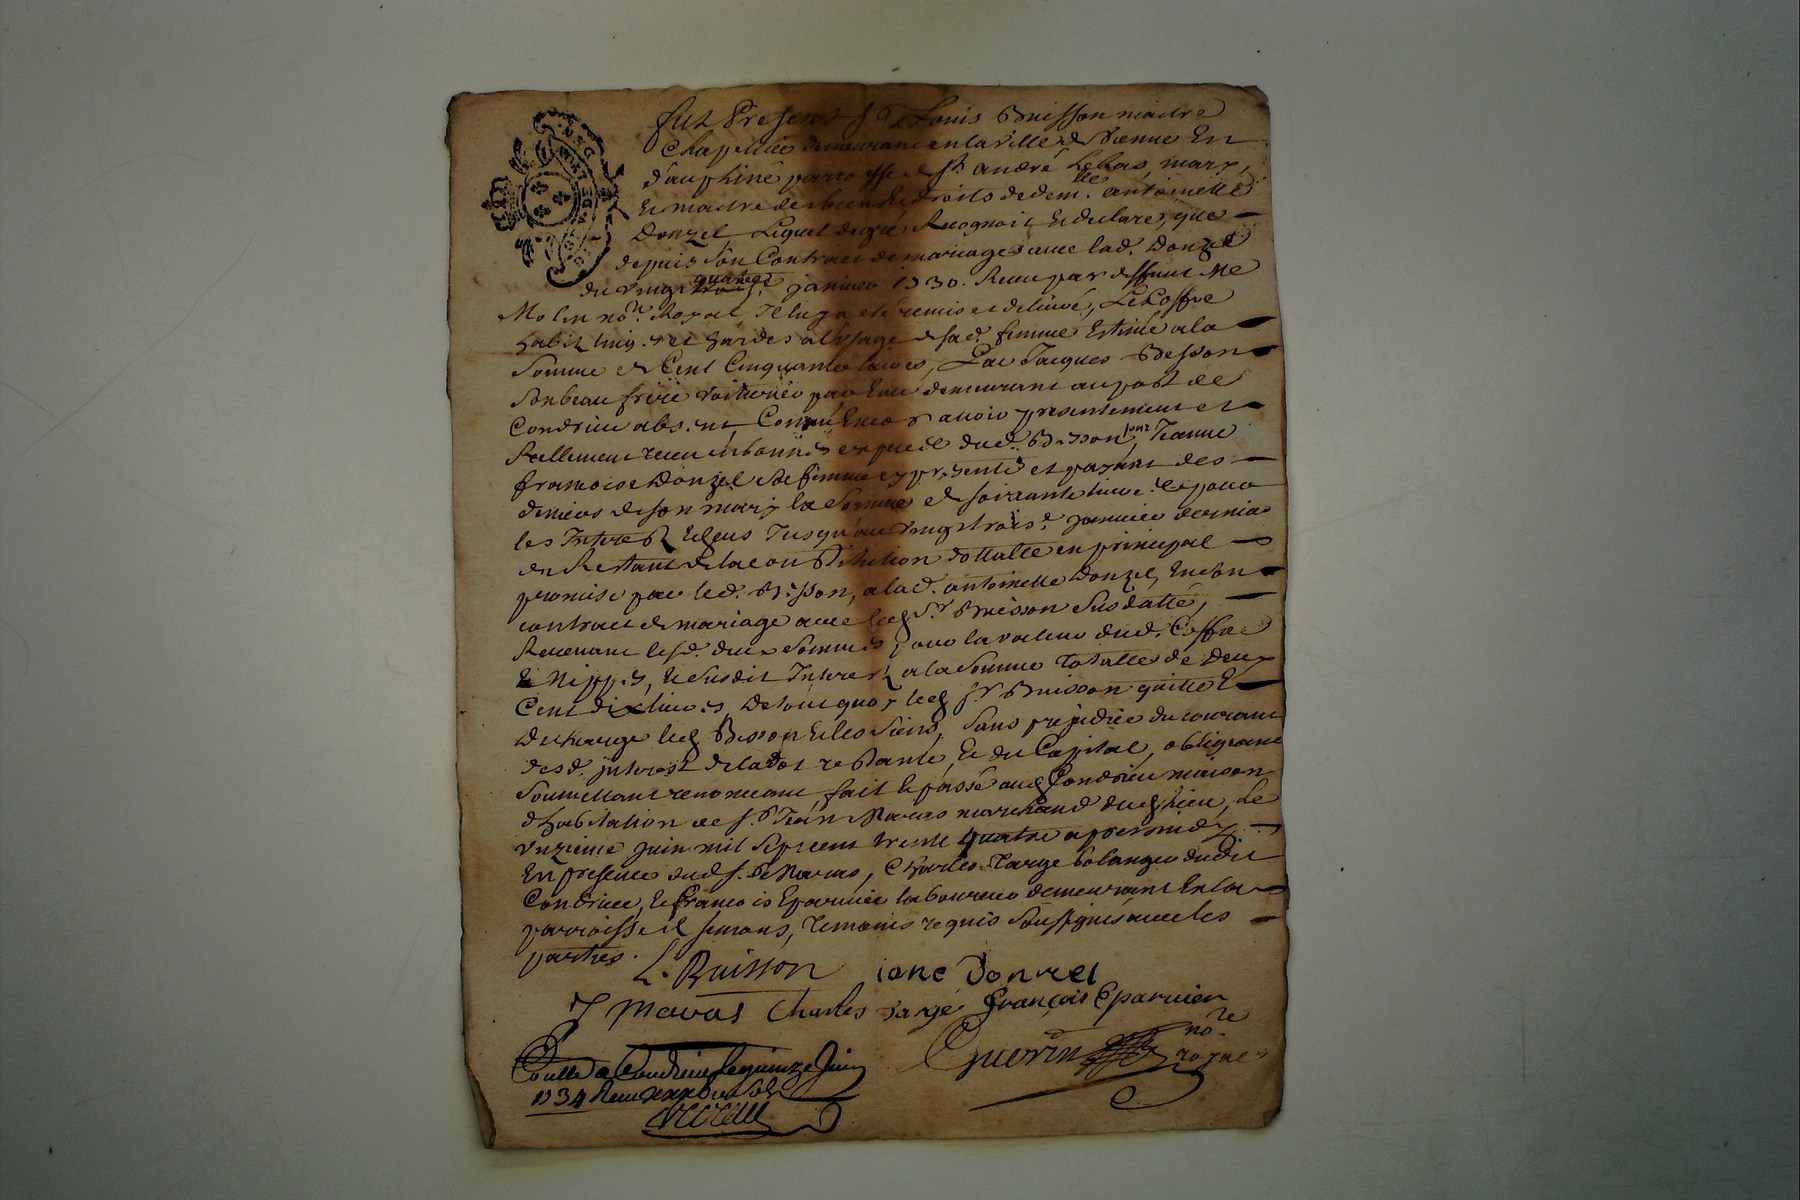 fut Present Sr Louis Buisson maitre
Chapellier demeurant en la ville de Vienne En
dauphiné parroisse de St andré Le bas, mary,
Et maitre des biens et droits de demlle antoinette
Donzel Lequel de gré Recognoit Et declare, que
depuis son Contract de mariage avec lad. Donzel
du vingt quatre janvier 1730. Receu par deffunt Me
Molin nore Royal Il luy a eté remis et delivré, Le Coffre
habit ling. et hardes a l'usage de sad. femme Estimé a la
Somme de Cent Cinquante livres, Par Jacques Besson
Son beau frère voiturier par Eau demeurant au port de
Condrieu absent, Comme Encor avoir presentement et
Reellement receu dud. Besson, Jeanne
francoise Donzel sa femme cy presente et payant des
deniers de son mary la Somme de soixante livres Et pour
les Interest Echeus Jusqu'au vingt trois e janvier dernier
du Restant de la Constitution dottalle en principal
promise par led. Besson, a lad. antoinette Donzel, En son
contract de mariage avec led Sr Buisson Susdatte,
Revenant lesd. deux Sommes, pour la valeur dud. Coffre
Et Nippes, Et Susdit Interest a la Somme totalle de Deux
Cent dix livres, De tout quoy led Sr Buisson quitte Et
Decharge led Besson Et les Siens, Sans prejudice du courant
desd. interest de la dot restante, Et du Capital, obligeant
Soumettant renonceant, fait Et passé aud Condrieu maison
d'habitation de Sr Jean Maras marchand dud lieu, Le
unzieme juin mil Sept cent trente quatre apres midy
En presence dud Sr Maras, Charles Targe bolanger dudit
Condrieu, Et francois Eparvier laboureur demeurant En la
parroisse de Semons, Temoins requis Soussignés avec les
parties.
L. Buisson iane Donzel
J Maras Charles Targe François Eparvier
Guerin nore royal
Conllé a Condrieu le quinze Juin
1734 Receu Sols